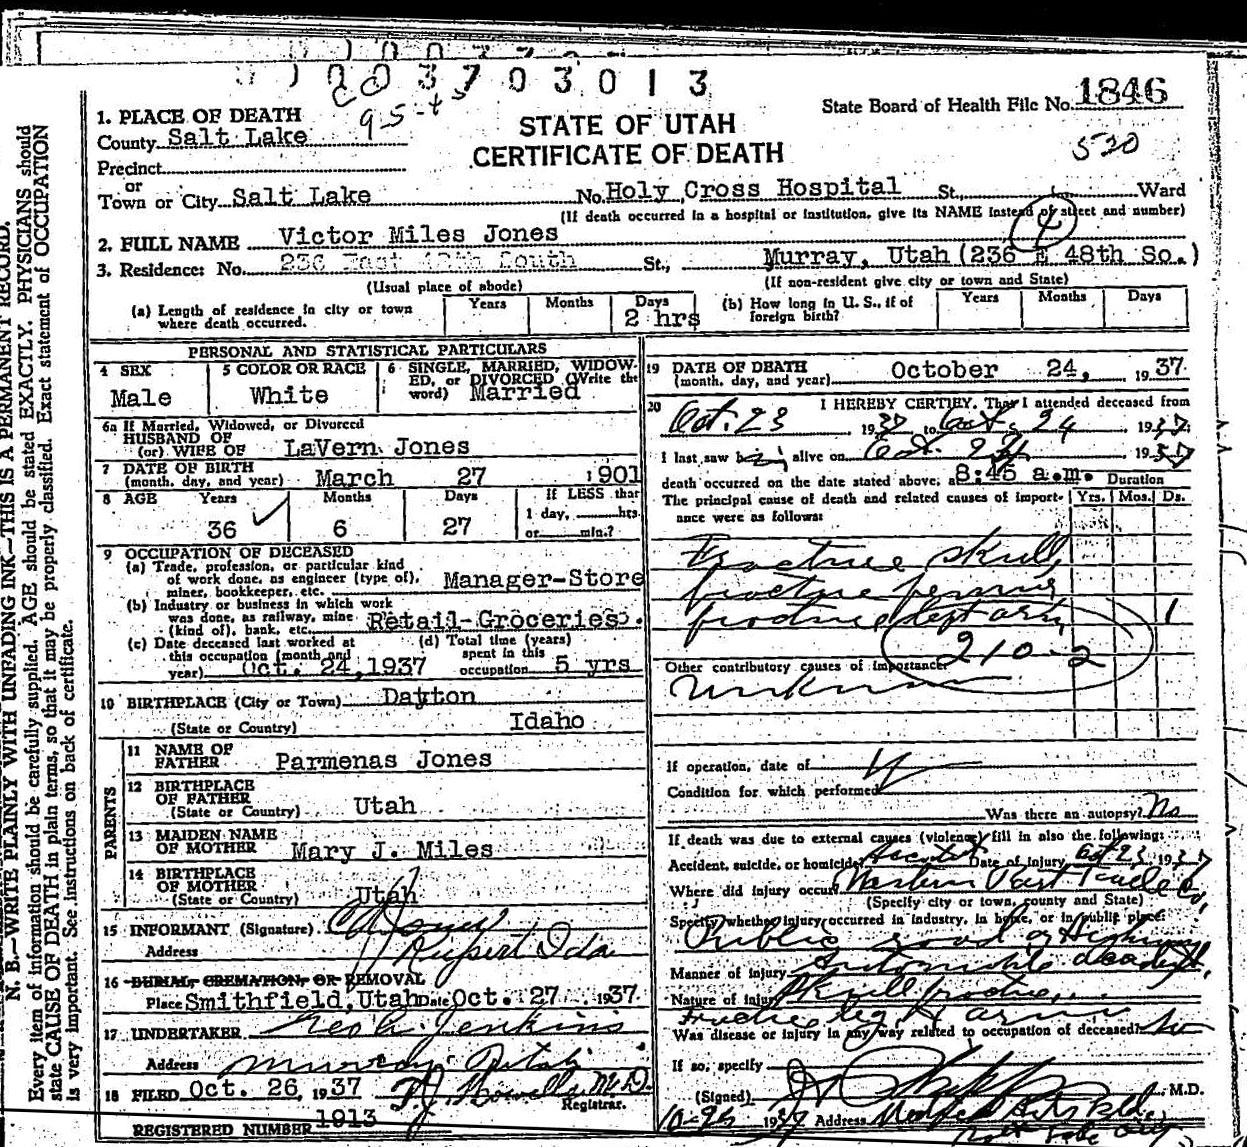 003703013
95-t
State Board of Health File No. 1846
530
1. PLACE OF DEATH
County Salt Lake
STATE OF UTAH
CERTIFICATE OF DEATH
Precinct
or
Town or City Salt Lake No. Holy Cross Hospital St., Ward
(If death occurred in a hospital or institution, give its NAME instead of street and number)
2. FULL NAME Victor Miles Jones
4
3. Residence: No. 236 East 48th South St., Murray, Utah (236 E 48th So.)
(Usual place of abode) (If non-resident give city or town and State)
(a) Length of residence in city or town where death occurred. Years Months Days 2 hrs
(b) How long in U. S., if of foreign birth? Years Months Days
PERSONAL AND STATISTICAL PARTICULARS
4 SEX Male
5 COLOR OR RACE White
6 SINGLE, MARRIED, WIDOWED, or DIVORCED (Write the word) Married
6a If Married, Widowed, or Divorced
HUSBAND OF
(or) WIFE OF LaVern Jones
7 DATE OF BIRTH
(month, day, and year) March 27 1901
8 AGE Years 36 Months 6 Days 27
If LESS than 1 day, hrs. or min.?
9 OCCUPATION OF DECEASED
(a) Trade, profession, or particular kind
of work done, as engineer (type of),
miner, bookkeeper, etc. Manager-Store
(b) Industry or business in which work
was done, as railway, mine
(kind of), bank, etc. Retail-Groceries.
(c) Date deceased last worked at
this occupation (month and
year) Oct. 24,1937
(d) Total time (years)
spent in this
occupation 5 yrs
10 BIRTHPLACE (City or Town) Dayton
(State or Country) Idaho
PARENTS
11 NAME OF
FATHER Parmenas Jones
12 BIRTHPLACE
OF FATHER
(State or Country) Utah
13 MAIDEN NAME
OF MOTHER Mary J. Miles
14 BIRTHPLACE
OF MOTHER
(State or Country) Utah
15 INFORMANT (Signature) Jones
Address Rupert Ida
16 BURIAL, CREMATION, OR REMOVAL
Place Smithfield, Utah Date Oct. 27 1937
17 UNDERTAKER Geo A. Jenkins
Address Murray Utah
18 FILED Oct. 26, 1937 Howells M.D.
Registrar.
REGISTERED NUMBER 1913
19 DATE OF DEATH
(month, day, and year) October 24, 1937
20 I HEREBY CERTIFY, That I attended deceased from
Oct. 23 1937 to Oct. 24, 1937
I last saw him alive on Oct. 24 1937
death occurred on the date stated above, at 8:45 a.m. Duration
The principal cause of death and related causes of importance were as follows: Yrs. Mos. Ds.
Fracture skull
fracture femur
fracture left arm 1
210-2
Other contributory causes of importance:
Unknown
If operation, date of
Condition for which performed
Was there an autopsy? No
If death was due to external causes (violence) fill in also the following:
Accident, suicide, or homicide? Accident Date of injury Oct 23, 1937
Where did injury occur? Western
(Specify city or town, county and State)
Specify whether injury occurred in industry, in home, or in public place:
Public road or Highway
Manner of injury Automobile accident,
Nature of injury Skull fracture,
Fracture leg & arm
Was disease or injury in any way related to occupation of deceased? No
If so, specify
(Signed) M.D.
10-26 1937 Address Medical Arts Bldg,
N. B.—WRITE PLAINLY WITH UNFADING INK—THIS IS A PERMANENT RECORD.
Every item of information should be carefully supplied. AGE should be stated EXACTLY. PHYSICIANS should
state CAUSE OF DEATH in plain terms, so that it may be properly classified. Exact statement of OCCUPATION
is very important. See instructions on back of certificate.